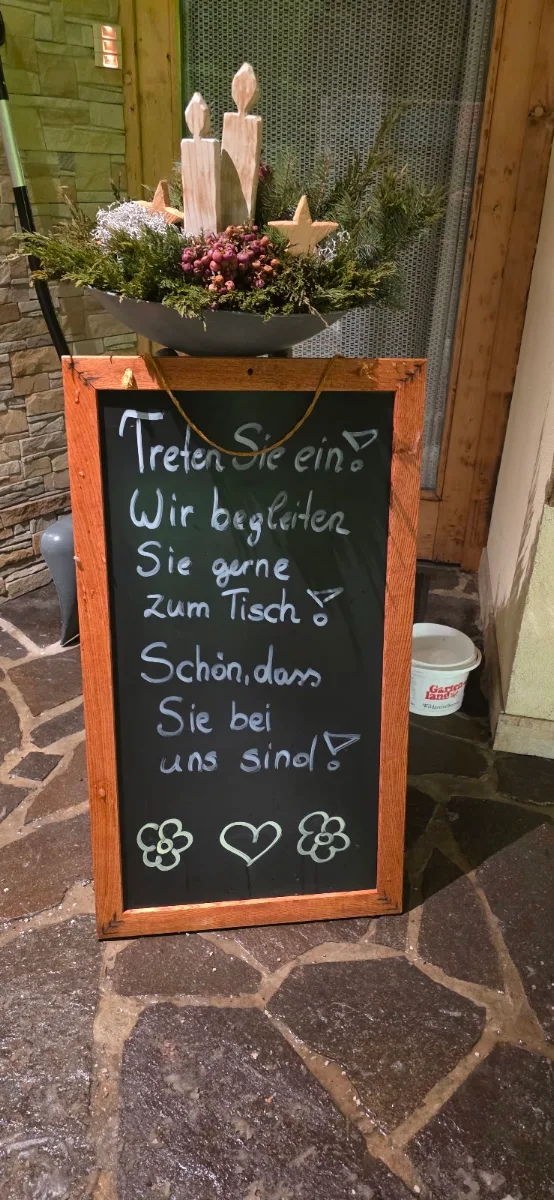 Treten Sie ein!
Wir begleiten
Sie gerne
zum Tisch!
Schön, dass
Sie bei
uns sind!
Garten
land